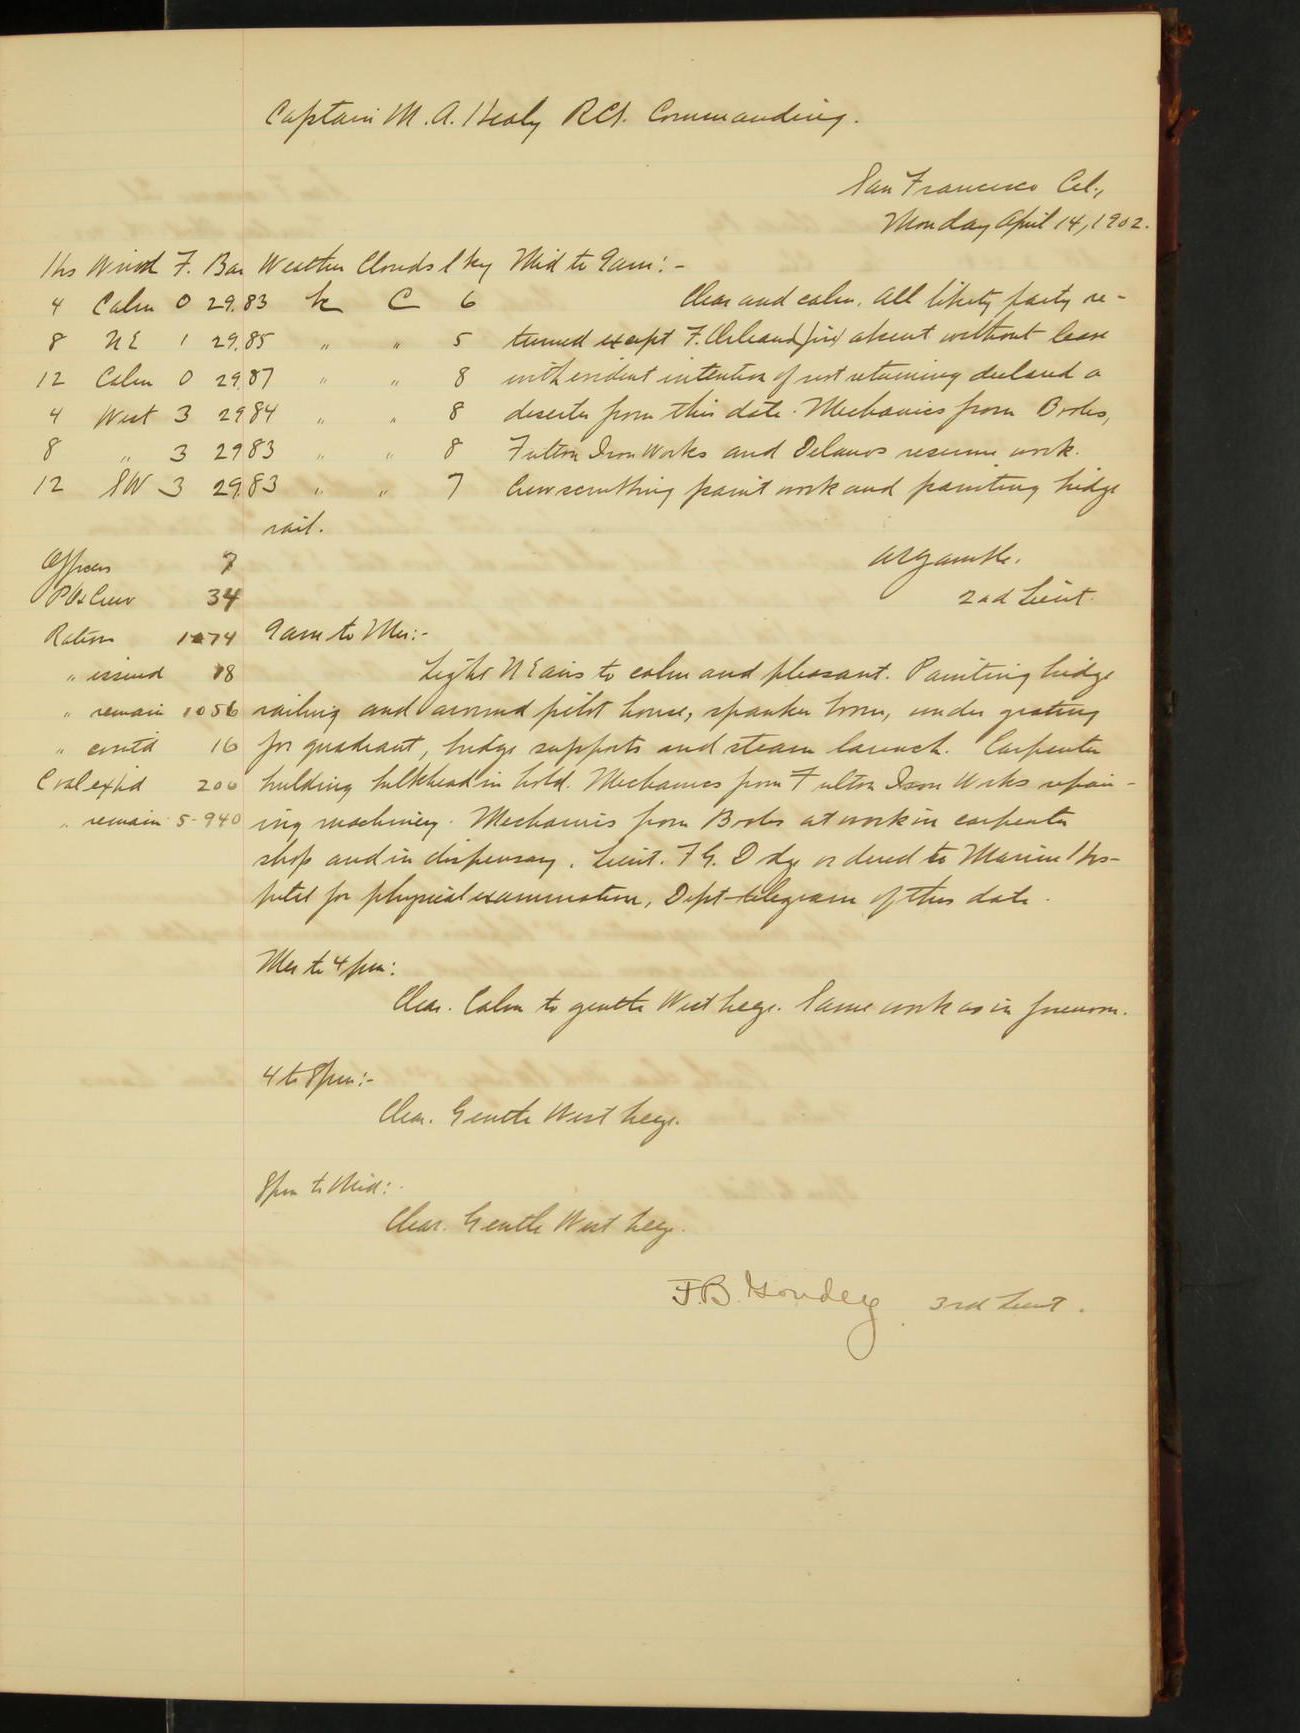 Captain M. A. Healy RCS. Commanding.
San Francisco Cal.,
Monday April 14, 1902.
Hrs Wind F. Bar Weather Clouds Sky Mid to 9am:-
4 Calm 0 29.83 bc C 6 Clear and calm. All liberty party re-
8 NE 1 29.85 " " 5 turned except F. absent without leave
12 Calm 0 29.87 " " 8 with evident intention of not returning declared a
4 West 3 29 84 " " 8 deserter from this date. Mechanics from Boles,
8 " 3 29 83 " " 8 Fulton Iron Works and Delanos resume work.
12 SW 3 29.83 " " 7 Crew scrubbing paint work and painting bridge
rail.
Officers 7
P.Os Crew 34
2nd Lieut.
Rations 1074 9am to Mer:-
" issued 18 Light NE airs to calm and pleasant. Painting bridge
" remain 1056 railing and around pilot house, spanker boom, under grating
" com'td 16 for quadrant, bridge supports and steam launch. Carpenter
Coal exp'd 200 building bulkhead in hold. Mechanics from Fulton Iron Works repair-
" remain 5-940 ing machinery. Mechanics from Boles at work in carpenter
shop and in dispensary. Lieut. F G. Dodge ordered to Marine Hos-
pital for physical examination, Dept telegram of this date.
Mer to 4 pm:
Clear. Calm to gentle West breeze. Same work as in forenoon.
4 to 8pm:-
Clear. Gentle West breeze.
8pm to Mid:-
Clear. Gentle West breeze.
F.B. 3rd Lieut.